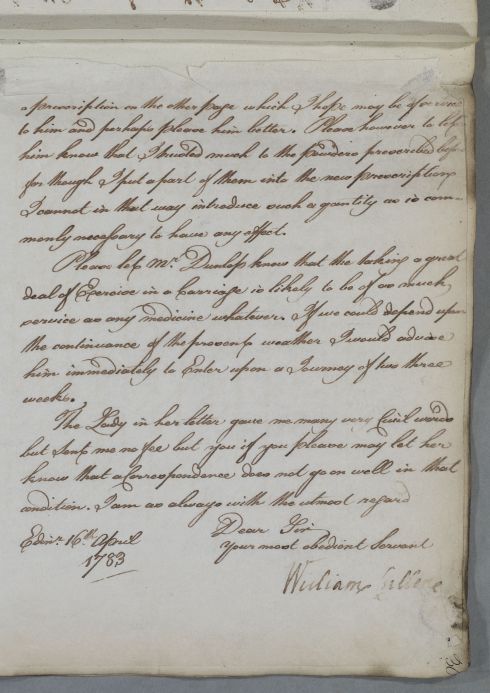 a prescription on the other page which I hope may be of service
to him and perhaps please him better. Please however to let
him know that I trusted much to the powders prescribed before
for though I put a part of them into the new prescription
I cannot in that way introduce such a quantity as is com-
monly necessary to have any effect.
Please let Mr. Dunlop know that the taking a great
deal of Exercise in a Carriage is likely to be of as much
service as any medicine whatever. If we could depend upon
the continuance of the present weather I would advise
him immediately to Enter upon a Journey of two three
weeks.
The Lady in her letter gave me many very Civil words
but sent me no fee but you if you please may let her
know that Correspondence does not go on well in that
condition. I am as always with the utmost regard
Dear Sir
Edinr. 16th. April your most obedient Servant
1783
William Cullen